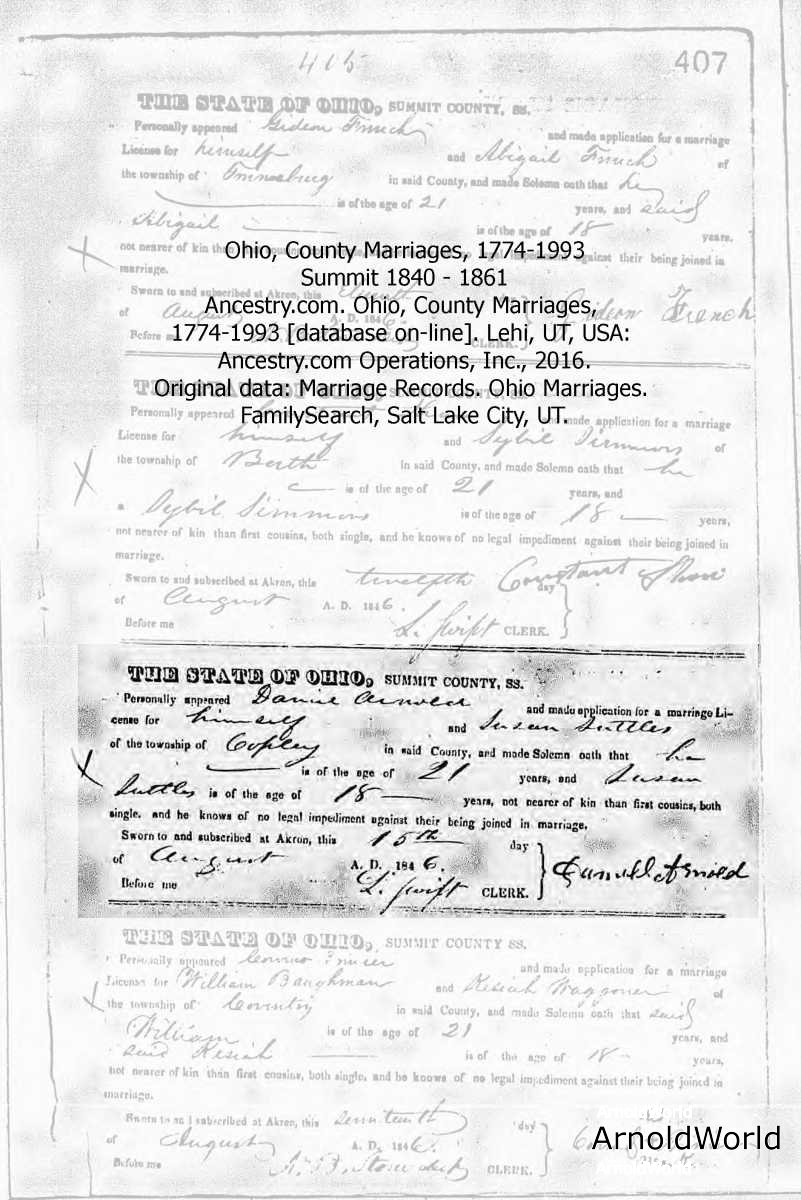 415
407
THE STATE OF OHIO, SUMMIT COUNTY, SS.
Personally appeared Gideon and made application for a marriage
License for himself and Abigail of
the township of in said County, and made Solemn oath that he
is of the age of 21 years, and said
Abigail is of the age of 18 years,
not nearer of kin against their being joined in
marriage.
Sworn to and subscribed at Akron, this
of August A. D. 1846. Gideon French
Before CLERK.
Ohio, County Marriages, 1774-1993
Summit 1840 - 1861
Ancestry.com. Ohio, County Marriages,
1774-1993 [database on-line]. Lehi, UT, USA:
Ancestry.com Operations, Inc., 2016.
Original data: Marriage Records. Ohio Marriages.
FamilySearch, Salt Lake City, UT.
THE STATE
Personally appeared made application for a marriage
License for himself and Sybil of
the township of in said County, and made Solemn oath that he
is of the age of 21 years, and
Sybil Simmons is of the age of 18 years,
not nearer of kin than first cousins, both single, and he knows of no legal impediment against their being joined in
marriage.
Sworn to and subscribed at Akron, this twelfth day
of August A. D. 1846.
Before me L. Swift CLERK.
THE STATE OF OHIO, SUMMIT COUNTY, SS.
Personally appeared Daniel Arnold and made application for a marriage Li-
cense for himself and Susan Suttles
of the township of Copley in said County, and made Solemn oath that he
is of the age of 21 years, and Susan
Suttles is of the age of 18 years, not nearer of kin than first cousins, both
single, and he knows of no legal impediment against their being joined in marriage.
Sworn to and subscribed at Akron, this 15th day
of August A. D. 1846. Daniel Arnold
Before me L. Swift CLERK.
THE STATE OF OHIO, SUMMIT COUNTY SS.
Personally appeared and made application for a marriage
License for William Baughman and Kesiah Waggoner of
the township of Coventry in said County, and made Solemn oath that said
William is of the age of 21 years, and
said Kesiah is of the age of 18 years,
not nearer of kin than first cousins, both single, and he knows of no legal impediment against their being joined in
marriage.
Sworn to and subscribed at Akron, this day
of August A. D. 1846.
Before me CLERK.
ArnoldWorld